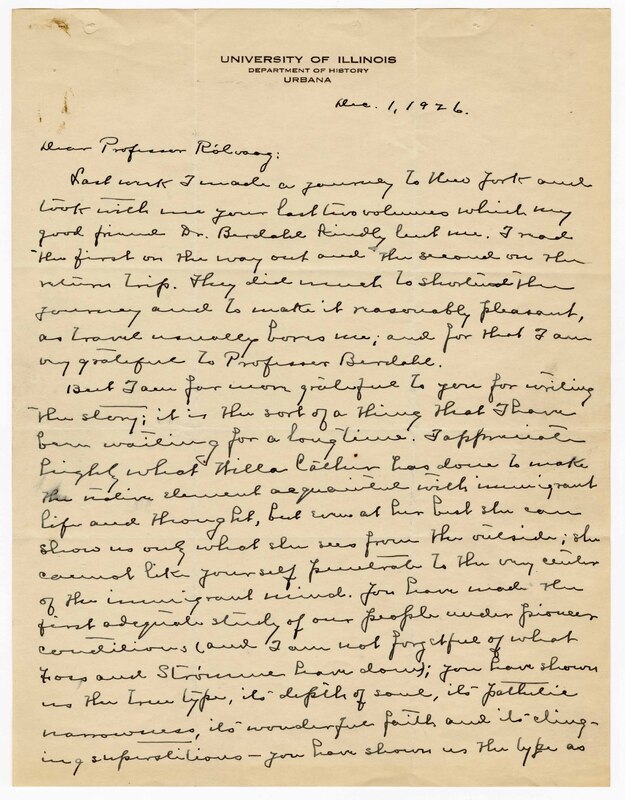 UNIVERSITY OF ILLINOIS
DEPARTMENT OF HISTORY
URBANA
Dec. 1, 1926.
Dear Professor Rölvaag:
Last week I made a journey to New York and
took with me your last two volumes which my
good friend Dr. Berdahl kindly lent me. I read
the first on the way out and the second on the
return trip. They did much to shorten the
journey and to make it reasonably pleasant,
as travel usually bores me; and for that I am
very grateful to Professor Berdahl.
But I am far more grateful to you for writing
the story; it is the sort of a thing that I have
been waiting for a long time. I appreciate
highly what Willa Cather has done to make
the native element acquainted with immigrant
life and thought, but even at her best she can
show us only what she sees from the outside; she
cannot like yourself penetrate to the very center
of the immigrant mind. You have made the
first adequate study of our people under pioneer
conditions (and I am not forgetful of what
Foss and Strømme have done); you have shown
us the true type, its depth of soul, its pathetic
narrowness, its wonderful faith and its cling-
ing superstitions – you have shown us the type as